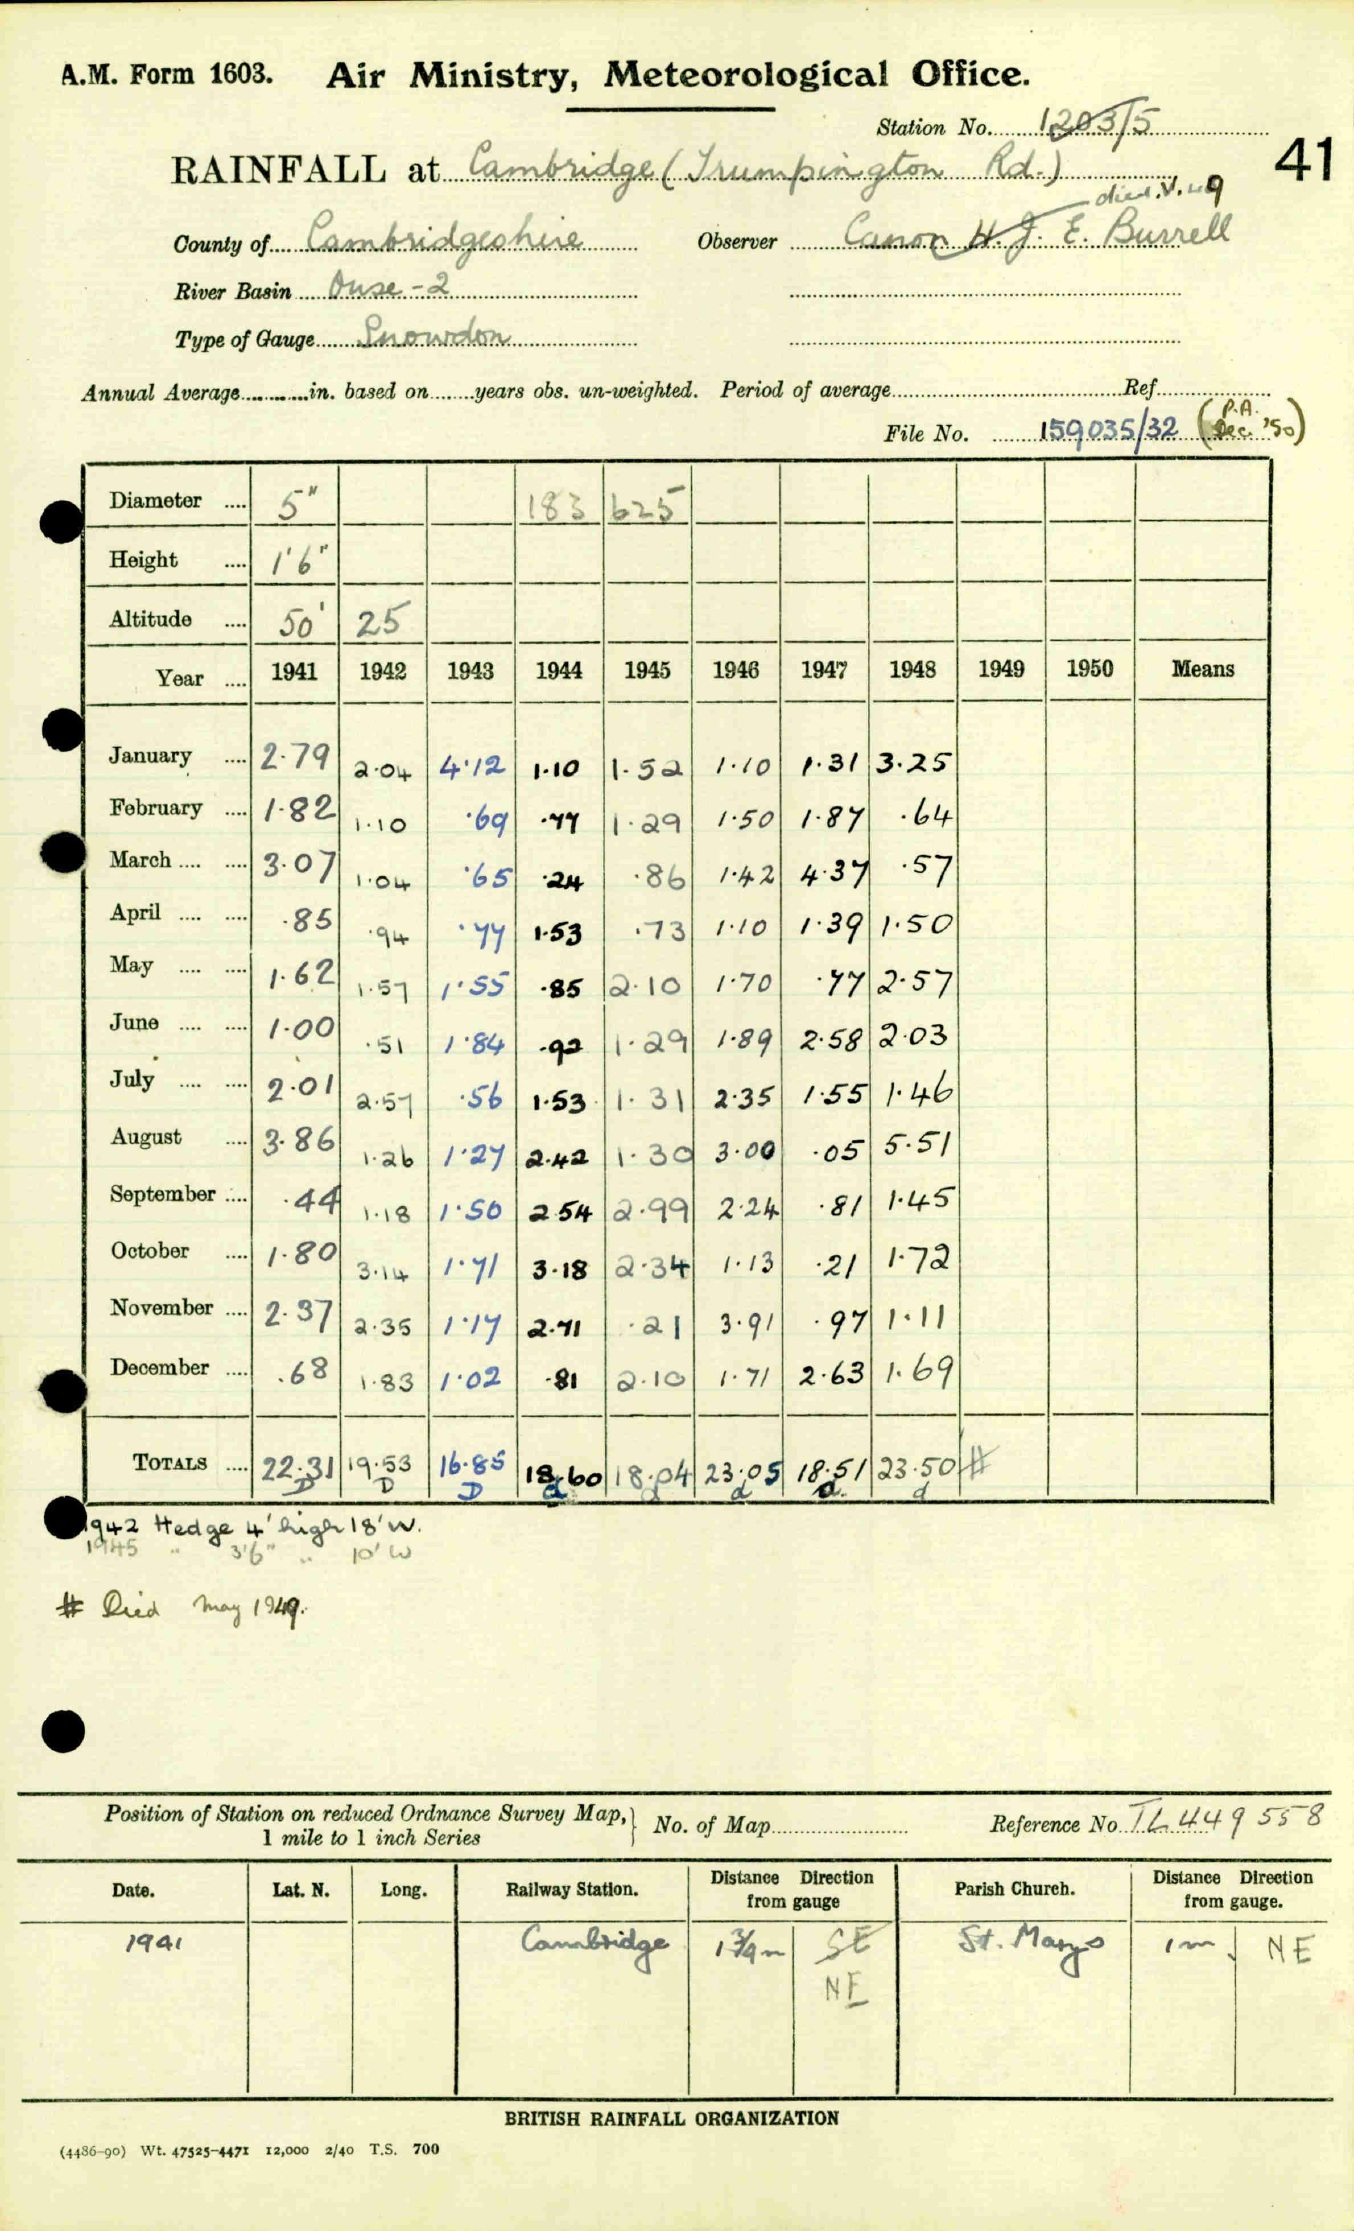 A.M. Form 1603. Air Ministry, Meteorological Office.
Station No. 1203/5
41
RAINFALL at Cambridge (Trumpington Rd.)
died V. 49
County of Cambridgeshire Observer Canon H. J. E. Burrell
River Basin Ouse - 2
Type of Gauge Snowdon
Annual Average in. based on years obs. un-weighted. Period of average Ref
File No. 159035/32 (P.A. Dec. '50)
Diameter 5" 183 625
Height 1'6"
Altitude 50' 25
Year 1941 1942 1943 1944 1945 1946 1947 1948 1949 1950 Means
January 2.79 2.04 4.12 1.10 1.52 1.10 1.31 3.25
February 1.82 1.10 .69 .77 1.29 1.50 1.87 .64
March 3.07 1.04 .65 .24 .86 1.42 4.37 .57
April .85 .94 .77 1.53 .73 1.10 1.39 1.50
May 1.62 1.57 1.55 .85 2.10 1.70 .77 2.57
June 1.00 .51 1.84 .92 1.29 1.89 2.58 2.03
July 2.01 2.57 .56 1.53 1.31 2.35 1.55 1.46
August 3.86 1.26 1.27 2.42 1.30 3.00 .05 5.51
September .44 1.18 1.50 2.54 2.99 2.24 .81 1.45
October 1.80 3.14 1.71 3.18 2.34 1.13 .21 1.72
November 2.37 2.35 1.17 2.71 .21 3.91 .97 1.11
December .68 1.83 1.02 .81 2.10 1.71 2.63 1.69
TOTALS 22.31 19.53 16.85 18.60 18.04 23.05 18.51 23.50 #
D D D d d d d. d
1942 Hedge 4' high 18' W.
1945 " 3'6" " 10' W
# Died May 1949.
Position of Station on reduced Ordnance Survey Map, 1 mile to 1 inch Series } No. of Map Reference No TL 449 558
Date. Lat. N. Long. Railway Station. Distance from gauge Direction Parish Church. Distance from gauge. Direction
1941 Cambridge 1¾ m SE St. Marys 1 m NE
NE
BRITISH RAINFALL ORGANIZATION
(4486-90) Wt. 47525-4471 12,000 2/40 T.S. 700